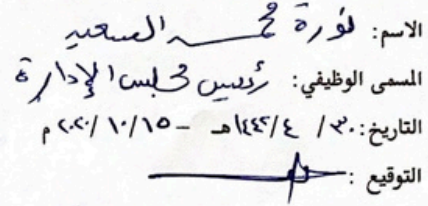 الاسم: نورة محمد السعيد
المسمى الوظيفي: رئيس مجلس الإدارة
التاريخ: ٣٠ / ٤ / ١٤٤٢هـ - ١٥ / ١٠ / ٢٠٢٠ م
التوقيع :